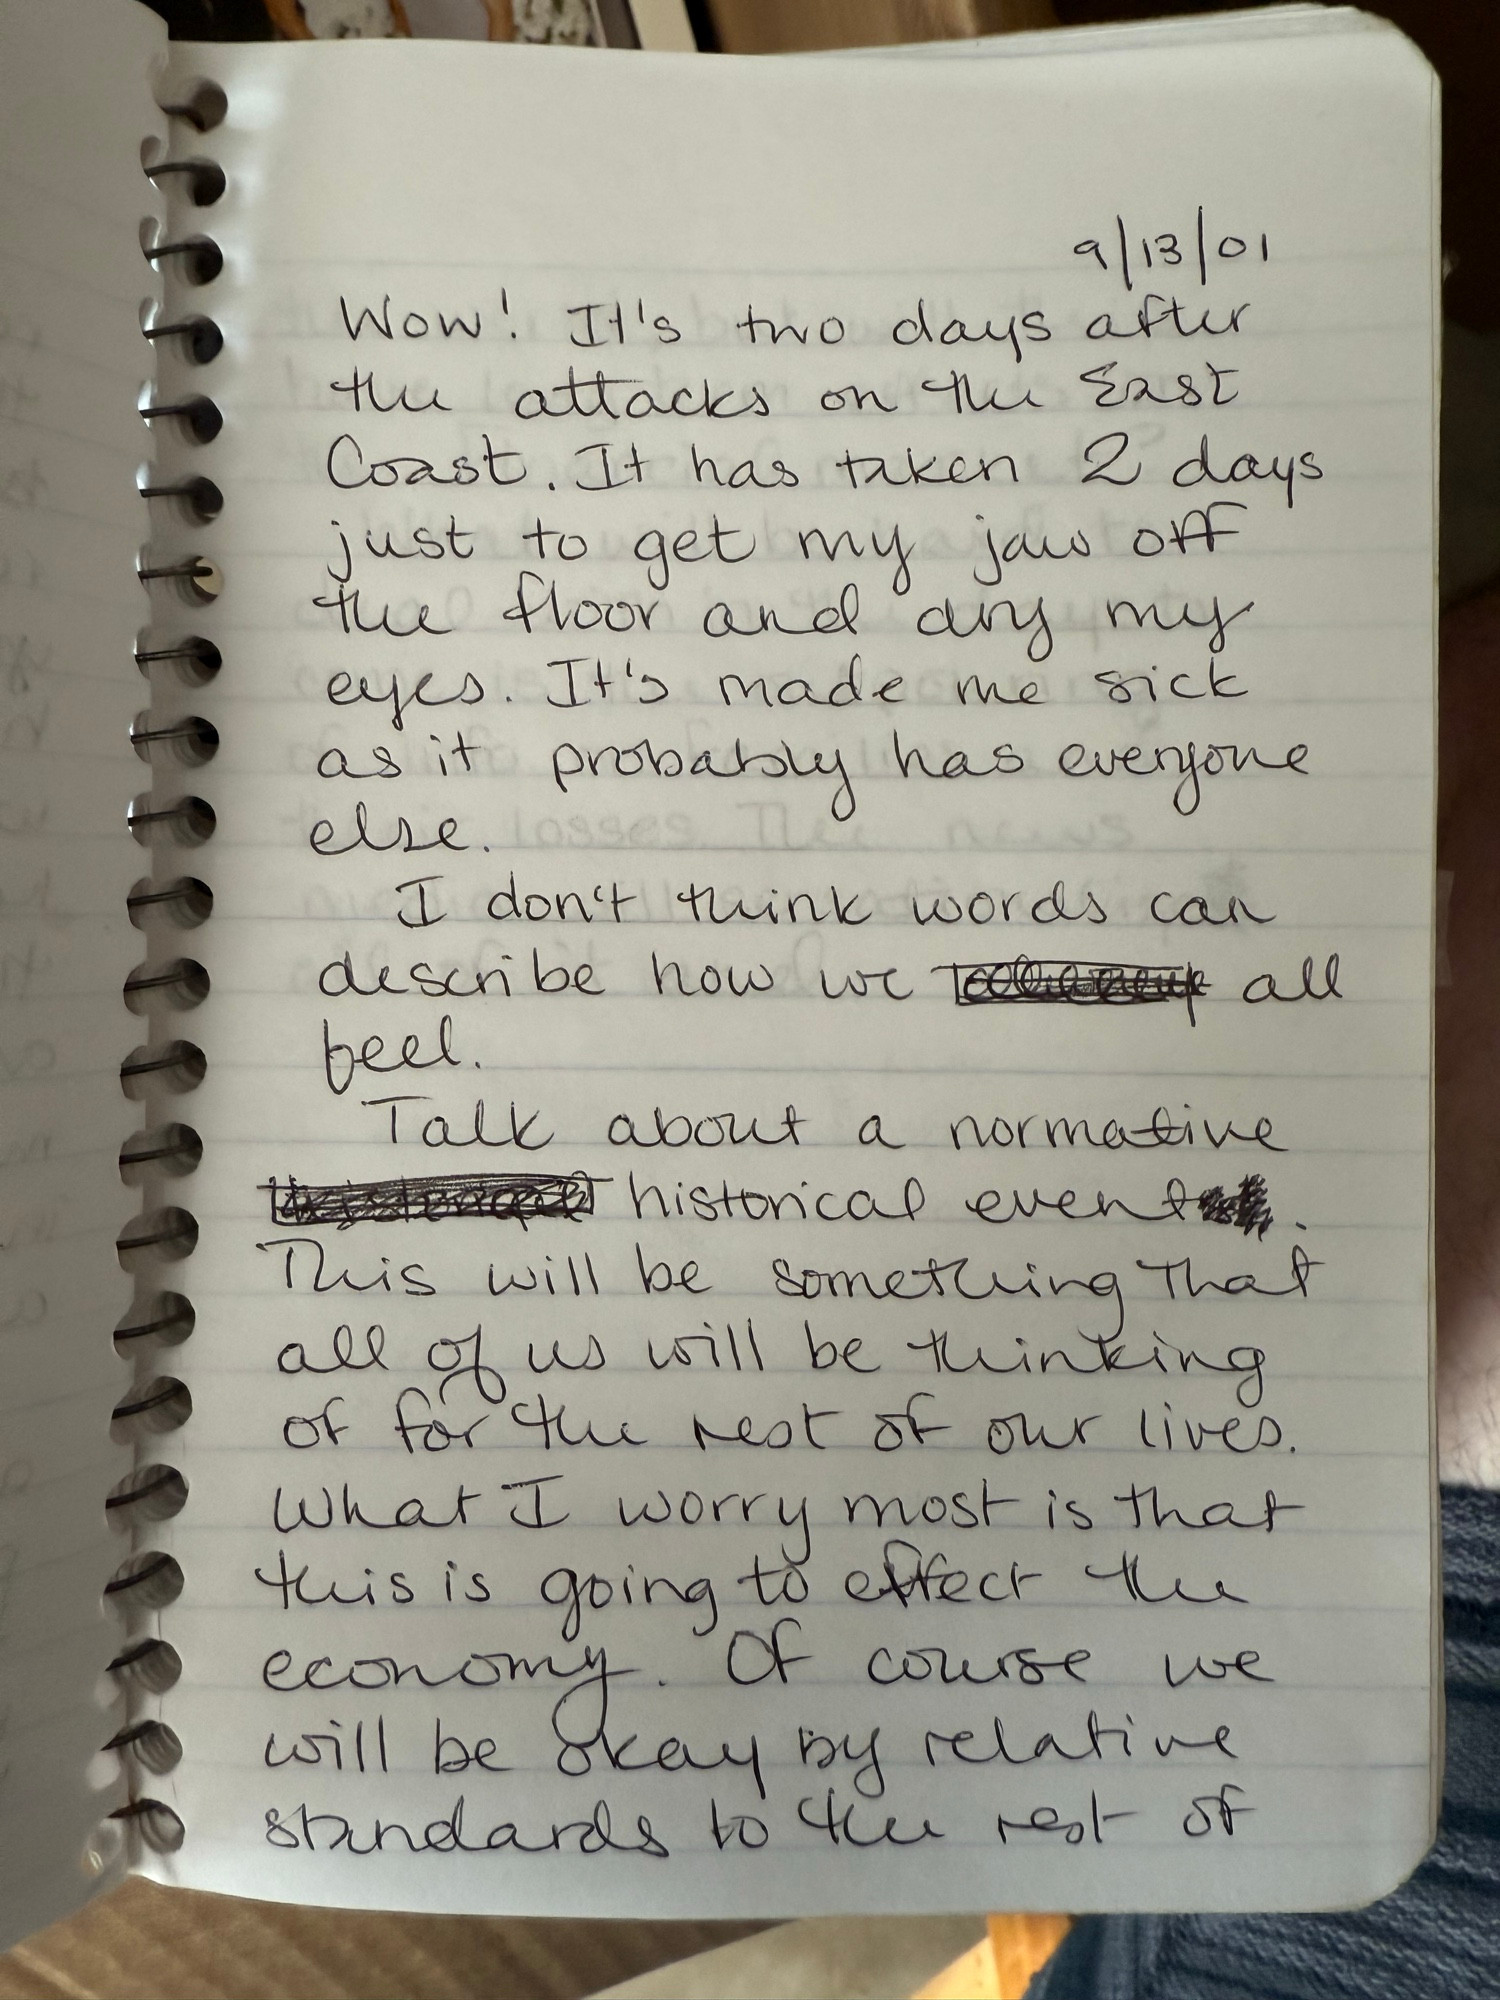 9/13/01
Wow! It's two days after
the attacks on the East
Coast. It has taken 2 days
just to get my jaw off
the floor and dry my
eyes. It's made me sick
as it probably has everyone
else.
I don't think words can
describe how we all
feel.
Talk about a normative
historical event.
This will be something that
all of us will be thinking
of for the rest of our lives.
What I worry most is that
this is going to effect the
economy. Of course we
will be okay by relative
standards to the rest of